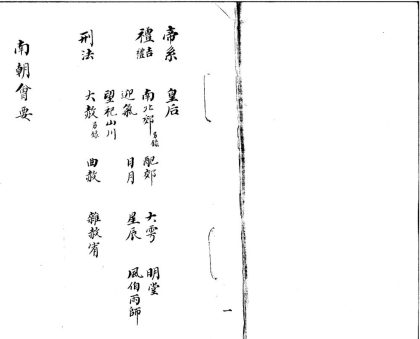 帝系 皇后
禮 吉 南北郊 另錄 配郊 大雩 明堂
迎氣 日月 星辰 風伯雨師
望祀山川
刑法 大赦 另錄 曲赦 雜赦宥
南朝會要
一